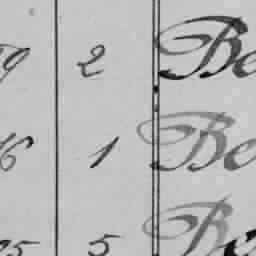 9 2 Be
6 1 Be
25 5 Be